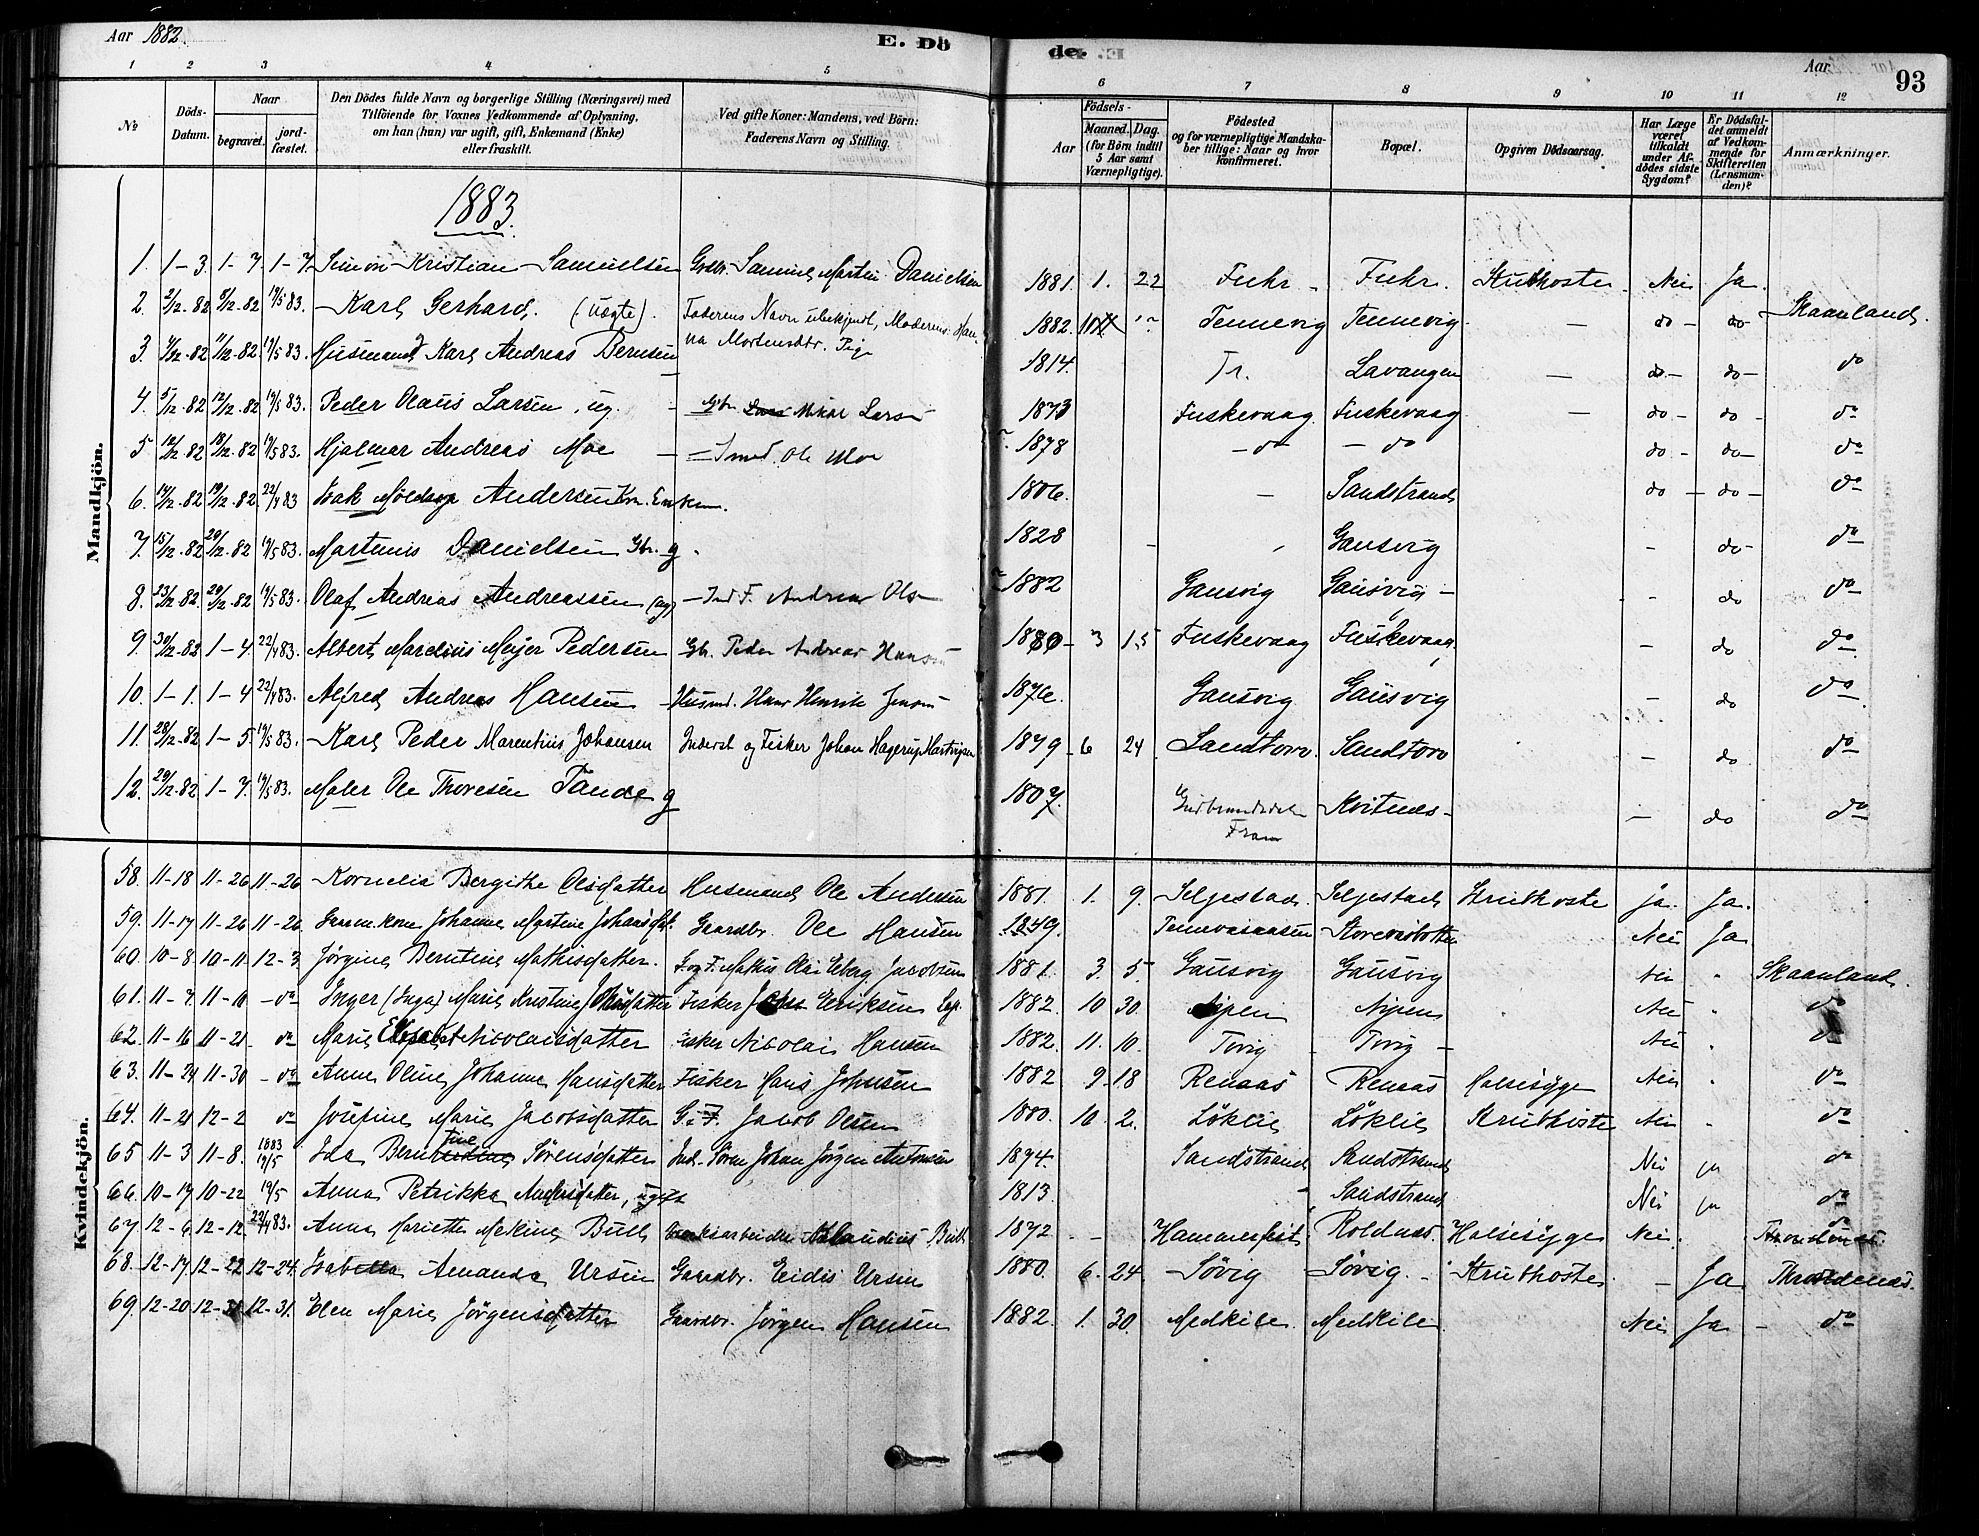 Aar 1882.
E. Dö
de.
Aar
93
1 2 3 4 5 6 7 8 9 10 11 12
No
Döds-Datum.
Naar
begravet.
jord-fæstet.
Den Dödes fulde Navn og borgerlige Stilling (Næringsvei) med
Tilföiende for Voxnes Vedkommende af Oplysning,
om han (hun) var ugift, gift, Enkemand (Enke)
eller fraskilt.
Ved gifte Koner: Mandens, ved Börn:
Faderens Navn og Stilling.
Födsels-
Aar
Maaned. Dag.
(for Börn indtil
5 Aar samt
Værnepligtige).
Födested
og for værnepligtige Mandska-
ber tillige: Naar og hvor
konfirmeret.
Bopæl.
Opgiven Dödsaarsag.
Har Læge
været
tilkaldt
under Af-
dödes sidste
Sygdom?
Er Dödsfal-
det anmeldt
af Vedkom-
mende for
Skifteretten
(Lensman-
den)?
Anmærkninger.
Mandkjön.
1883.
1. 1-3. 1-7. 1-7. Simon Kristian Samuelsen Grdbr. Samuel Martin Danielsen 1881. 1. 22 Fuhr Fuhr. Strubhoste Nei Ja
2. 2/12-82 8/12-82 19/5 83. Karl Gerhard, (uægte). Faderens Navn ubekjendt, Moderens: Han 1882. Tennevig Tennevig. - do - do Skaanland.
na Mortensdtr. Pige
3. 4/12-82 11/12-82 19/5 83. Husmand Karl Andreas Berntsen 1814. Tr. Lavangen - do - do - do
4. 5/12-82 12/12-82 19/5 83. Peder Olaus Larsen, ug. - Gbr. Mikal Larsen 1873 Fuskevaag Fuskevaag - do - do - do
5 12/12-82 18/12-82 19/5 83. Hjalmar Andreas Moe - Ole Moe 1878 - do - do do - do - do
6. 14/12-82 19/12-82 22/4 83 Isak Andersen Enkem. 1806. - Sandstrand do - do - do
7. 15/12-82 29/12-82 19/5 83. Martinus Danielsen Gbr. g. 1828 - Gausvig - do - do
8. 23/12-82. 29/12-82 19/5 83. Olaf Andreas Andreassen (ug) - Ind F. Andreas Ols 1882 Gausvig Gausvig - - do do
9. 30/12-82 1-4. 22/4 83. Albert Marelius Mejer Pedersen Gbr. Peder Andreas Hansen 1880 - 3 15 Fuskevaag Fuskevaag - do do
10. 1-1. 1-4 22/4 83. Alfred Andreas Hansen - Husmd. Hans Henrik Jensen 1876. Gausvig Gausvig - do do
11. 28/12-82 1-5. 19/5 83. Karl Peder Marentius Johansen Inderst og Fisker Johan Hagerup Hartvigsen 1879 - 6 24 Sandtorv. Sandtorv - do do
12. 29/12-82 1-7. 19/5 83. Maler Ole Thoresen Tande g 1807. Gudbrandsdalen Kvitnes - - do do
Fron
Kvindekjön.
58. 11-18 11-26 11-26 Kornelia Bergithe Olsdatter Husmand Ole Andersen 1881. 1. 9. Seljestad Seljestad Strubhoste ja. Ja.
59. 11-17 11-26 11-26 Johanne Martine Johansdat. Gaardbr. Ole Hansen 1849. Storevasbotten Nei Ja
60. 10-8 10-11 12-3. Jørgine Berntine Mathisdatter. G. og F. Mathis Olai Eberg Jacobsen 1881. 3. 5. Gausvig Gausvig Nei " Skaanland.
61. 11-7 11-10 - do Inger (Inga) Marie Kristine Johansdatter Fisker Johan Eeriksen 1882. 10 30. Aipen Aipen Nei " do
62. 11-16 11-21 do Marie Elisabet Nicolaisdatter Fisker Nicolai Hansen 1882. 11. 10. Tovig Tovig - Nei " do
63. 11-24 11-30 - do Anne Oline Johanne Hansdatter Fisker Hans Johnsen 1882 9-18 Renaas Renaas Halssyge Nei " do
64. 11-21 12-2 do Josefine Marie Jacobsdatter G. & F. Jacob Olsen 1880. 10. 2. Løklie Løklie Strubhoste Nei " do
65 11-3 11-8. 1883 19/5 Ida Berntine Sørensdatter Ind. Søren Johan Jørgen Antonsen 1874. Sandstrand Sandstrand Nei ja do
66. 10-17 10-22 19/5 Anna Petrikka Andersdatter, ugift 1813. " Sandstrand Nei ja do
67 12-6 12-12. 22/4 83. Anna Mariette Mekine Bull Klaudius Bull 1872 - - Hammerfest. Roldnes. Halssyge Nei. do Trondenes.
68. 12-17 12-22 12-24. Isabella Amanda Ursin Gaardbr. Eidis Ursin 1880. 6. 24 Søvig Søvig. - Strubhoste. - Ja Throndenes.
69. 12-20 12-31 12-31. Elen Marie Jørgensdatter Gaardbr. Jørgen Hansen 1882. 1. 30. Medkile Medkile Nei Ja - do